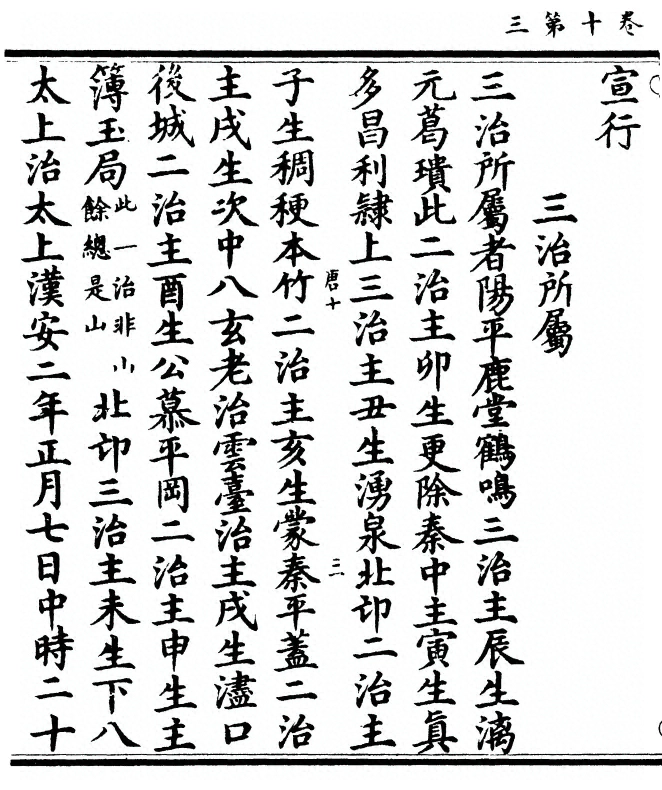 卷十第三
宣行
三治所屬
三治所屬者陽平鹿堂鶴鳴三治主辰生漓
元葛璝此二治主卯生更除秦中主寅生眞
多昌利隸上三治主丑生湧泉北邙二治主
唐十
三
子生稠稉本竹二治主亥生蒙秦平蓋二治
主戌生次中八玄老治雲臺治主戌生濜口
後城二治主酉生公慕平岡二治主申生主
簿玉局此一治非山餘總是山北邙三治主未生下八
太上治太上漢安二年正月七日中時二十